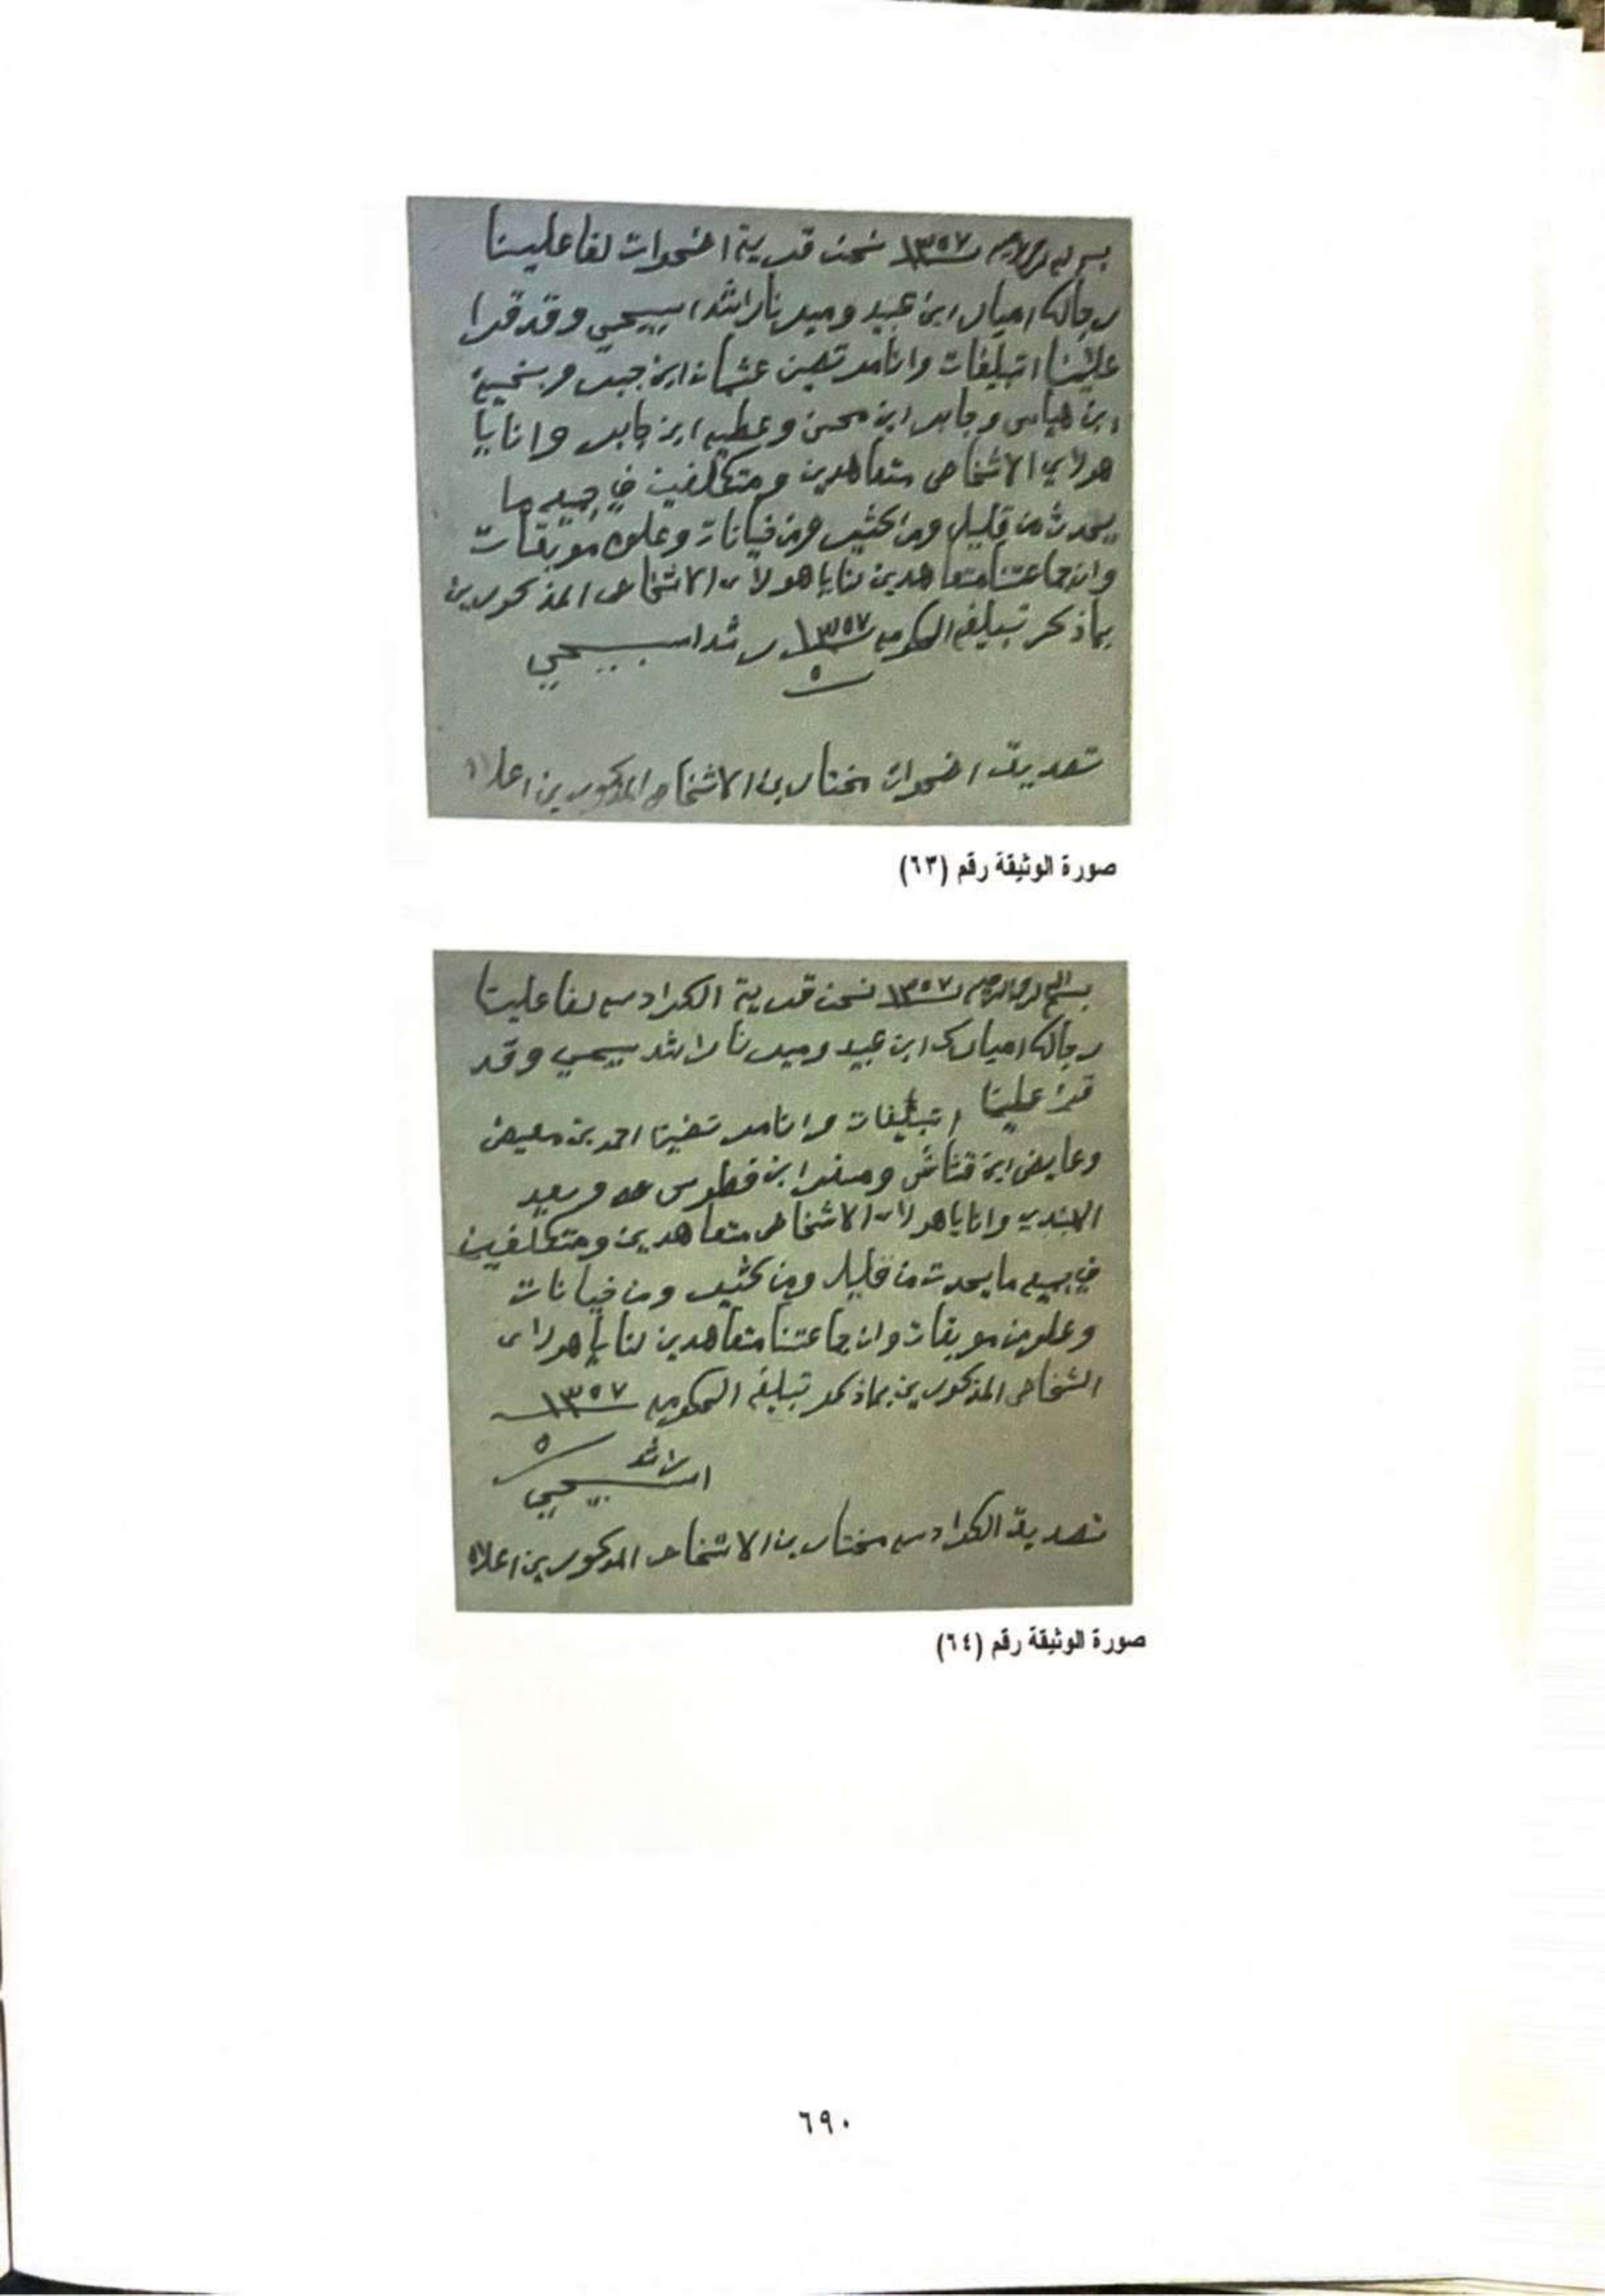 بسم الله الرحمن الرحيم ١٣٥٧ نحن قرية اضحوات لفا علينا
رجالك امبارك ابن عبيد وميدنا راشد اسبيحي وقد قرا
علينا اتبليغات وانا مرتضين عثمان ابن جبر وبخيت
ابن هياس وجابر ابن محسن وعطيه ابن جابر وانا يا
هولاي الاشخاص متعاهدين ومتكلفين في جميع ما
يحدث من قليل ومن كثير ومن خيانات وعلوم موبقات
وان جماعتنا متعاهدين لنا يا هولاى الاشخاص المذكورين
بماذكر تبليغ الحكومه ١٣٥٧ راشد اسبيحي
٥
تصديق اضحوات مختارين الاشخاص المذكورين اعلاه
صورة الوثيقة رقم (٦٣)
بسم الله الرحمن الرحيم ١٣٥٧ نحن قرية الكرادسه لفا علينا
رجالك امبارك ابن عبيد وميدنا راشد سبيحي وقد
قرا علينا اتبليغات وانا مرتضينا احمد بن معيض
وعايض ابن قناش ومسفر ابن فطوس وسعيد
وانا يا هولاى الاشخاص متعاهدين ومتكلفين
في جميع ما يحدث من قليل ومن كثير ومن خيانات
وعلوم موبقات وان جماعتنا متعاهدين لنا يا هولاى
الشخاص المذكورين بماذكر تبليغ الحكومه ١٣٥٧
٥
راشد
اسبيحي
تصديق الكرادسه مختارين الاشخاص المذكورين اعلاه
صورة الوثيقة رقم (٦٤)
٦٩٠